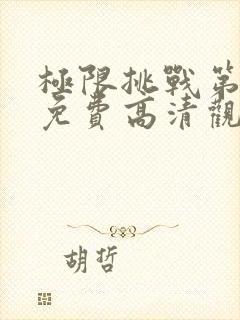 極限挑戰第
免費高清觀
胡哲